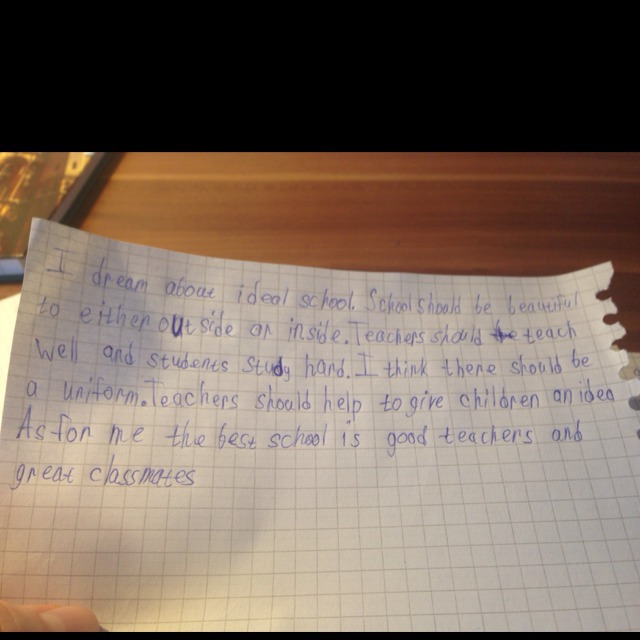 I dream about ideal school. School should be beautiful
to either outside or inside. Teachers should teach
well and students study hard. I think there should be
a uniform. Teachers should help to give children an idea
As for me the best school is good teachers and
great classmates